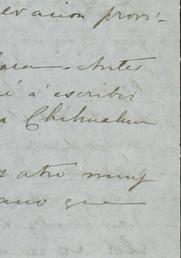 evacion provi-
Antes
é á escribir
a Chihuahua
otro muy
que